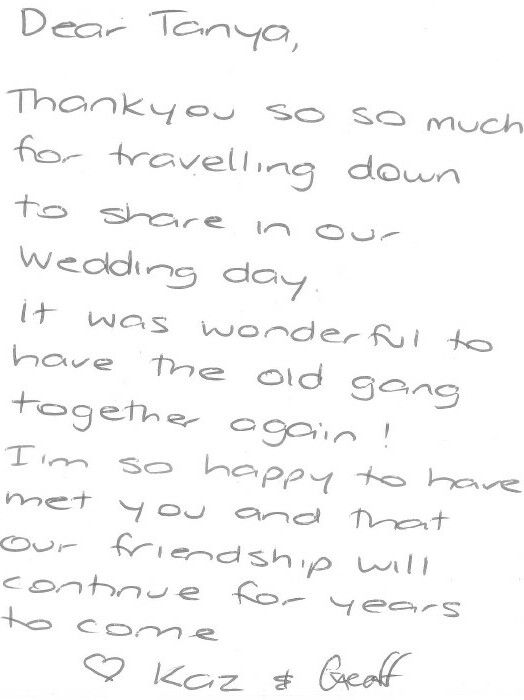 Dear Tanya,
Thankyou so so much
for travelling down
to share in our
wedding day.
it was wonderful to
have the old gang
together again!
I'm so happy to have
met you and that
our friendship will
continue for years
to come
♡ Kaz & Geoff